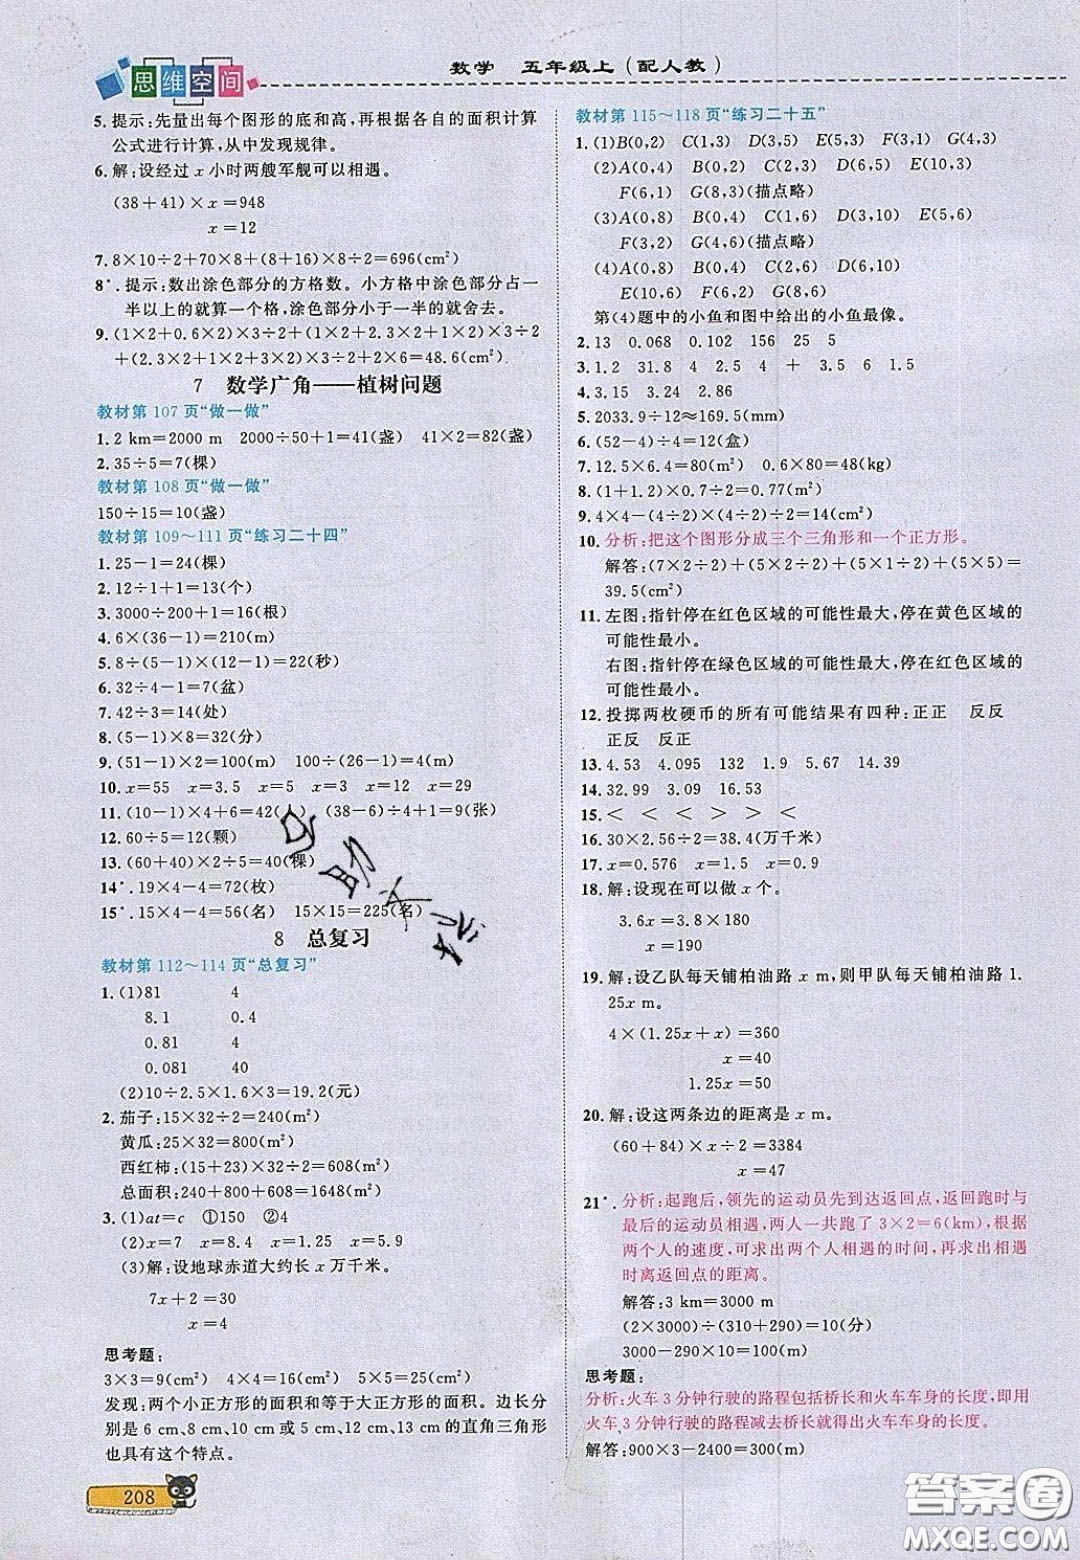 思维空间
数学 五年级上(配人教)
5. 提示:先量出每个图形的底和高,再根据各自的面积计算
公式进行计算,从中发现规律。
6. 解:设经过 x 小时两艘军舰可以相遇。
(38+41)×x=948
x=12
7. 8×10÷2+70×8+(8+16)×8÷2=696(cm²)
8*. 提示:数出涂色部分的方格数。小方格中涂色部分占一
半以上的就算一个格,涂色部分小于一半的就舍去。
9. (1×2+0.6×2)×3÷2+(1×2+2.3×2+1×2)×6÷2
+(2.3×2+1×2+3×2)×3÷2+2×6=48.6(cm²)
7 数学广角——植树问题
教材第 107 页“做一做”
1. 2 km=2000 m 2000÷50+1=41(盏) 41×2=82(盏)
2. 35÷5=7(棵)
教材第 108 页“做一做”
150÷15=10(盏)
教材第 109～111 页“练习二十四”
1. 25-1=24(棵)
2. 12÷1+1=13(个)
3. 3000÷200+1=16(根)
4. 6×(36-1)=210(m)
5. 8÷(5-1)×(12-1)=22(秒)
6. 32÷4-1=7(盆)
7. 42÷3=14(处)
8. (5-1)×8=32(分)
9. (51-1)×2=100(m) 100÷(26-1)=4(m)
10. x=55 x=3.5 x=5 x=3 x=12 x=27
11. (10-1)×4+6=42(人) (38-6)÷4+1=9(张)
12. 60÷5=12(颗)
13. (60+40)×2÷5=40(棵)
14*. 19×4-4=72(枚)
15*. 15×4-4=56(名) 15×15=225(名)
8 总复习
教材第 112～114 页“总复习”
1. (1)81 4
8.1 0.4
0.81 4
0.081 40
(2)10÷2.5×1.6×3=19.2(元)
2. 茄子:15×32÷2=240(m²)
黄瓜:25×32=800(m²)
西红柿:(15+23)×32÷2=608(m²)
总面积:240+800+608=1648(m²)
3. (1)at=c ①150 ②4
(2)x=7 x=8.4 x=1.25 x=5.9
(3)解:设地球赤道大约长 x 万千米。
7x+2=30
x=4
思考题:
3×3=9(cm²) 4×4=16(cm²) 5×5=25(cm²)
发现:两个小正方形的面积和等于大正方形的面积。边长分
别是 6 cm、8 cm、10 cm 或 5 cm、12 cm、13 cm 的直角三角形
也具有这个特点。
208
教材第 115～118 页“练习二十五”
1. (1)B(0,2) C(1,3) D(3,5) E(5,3) F(3,1) G(3,3)
(2)A(0,4) B(0,2) C(2,3) D(6,5) E(8,4)
F(6,1) G(8,3)(描点略)
(3)A(0,8) B(0,4) C(1,6) D(3,10) E(5,6)
F(3,2) G(3,6)(描点略)
(4)A(0,8) B(0,4) C(2,6) D(6,10)
E(10,6) F(6,2) G(6,6)
第(4)题中的小鱼和图中给出的小鱼最像。
2. 13 0.068 0.102 156 25 5
3. 1.2 31.8 4 25 4 + 1.6 1.5
4. 3.15 3.24 2.86
5. 2033.9÷12≈169.5(mm)
6. (52-4)÷4=12(盒)
7. 12.5×6.4=80(m²) 0.6×80=48(kg)
8. (1+1.2)×0.7÷2=0.77(m²)
9. 4×4-(4÷2)×(4÷2)÷2=14(cm²)
10. 分析:把这个图形分成三个三角形和一个正方形。
解答:(7×2÷2)+(5×2÷2)+(5×1÷2)+(5×5)=
39.5(cm²)
11. 左图:指针停在红色区域的可能性最大,停在黄色区域的
可能性最小。
右图:指针停在绿色区域的可能性最大,停在红色区域的
可能性最小。
12. 投掷两枚硬币的所有可能结果有四种:正正 反反
正反 反正
13. 4.53 4.095 132 1.9 5.67 14.39
14. 32.99 3.09 16.53
15. < < < > <
16. 30×2.56÷2=38.4(万千米)
17. x=0.576 x=1.5 x=0.9
18. 解:设现在可以做 x 个。
3.6x=3.8×180
x=190
19. 解:设乙队每天铺柏油路 x m,则甲队每天铺柏油路 1.
25x m。
4×(1.25x+x)=360
x=40
1.25x=50
20. 解:设这两条边的距离是 x m。
(60+84)×x÷2=3384
x=47
21*. 分析:起跑后,领先的运动员先到达返回点,返回跑时与
最后的运动员相遇,两人一共跑了 3×2=6(km),根据
两个人的速度,可求出两个人相遇的时间,再求出相遇
时离返回点的距离。
解答:3 km=3000 m
(2×3000)÷(310+290)=10(分)
3000-290×10=100(m)
思考题:
分析:火车 3 分钟行驶的路程包括桥长和火车车身的长度,即用
火车 3 分钟行驶的路程减去桥长就得出火车车身的长度。
解答:900×3-2400=300(m)
答案圈
MXQE.COM